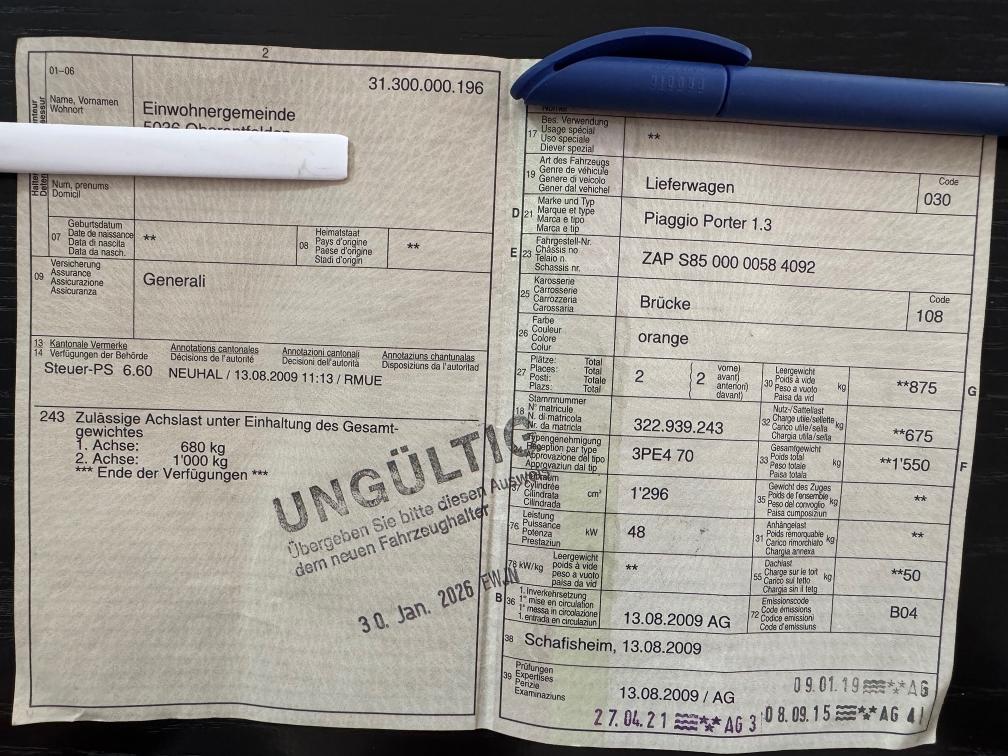 2
01–06
31.300.000.196
Name, Vornamen
Wohnort
Einwohnergemeinde
5036 Oberentfelden
Num, prenums
Domicil
07 Geburtsdatum
Date de naissance
Data di nascita
Data da nasch.
**
08 Heimatstaat
Pays d'origine
Paese d'origine
Stadi d'origin
**
09 Versicherung
Assurance
Assicurazione
Assicuranza
Generali
13 Kantonale Vermerke Annotations cantonales Annotazioni cantonali Annotaziuns chantunalas
14 Verfügungen der Behörde Décisions de l'autorité Decisioni dell'autorità Disposiziuns da l'autoritad
Steuer-PS 6.60 NEUHAL / 13.08.2009 11:13 / RMUE
243 Zulässige Achslast unter Einhaltung des Gesamt-
gewichtes
1. Achse: 680 kg
2. Achse: 1'000 kg
*** Ende der Verfügungen ***
UNGÜLTIG
Übergeben Sie bitte diesen Ausweis
dem neuen Fahrzeughalter
30. Jan. 2026
17 Bes. Verwendung
Usage spécial
Uso speciale
Diever spezial
**
19 Art des Fahrzeugs
Genre de véhicule
Genere di veicolo
Gener dal vehichel
Lieferwagen
Code
030
D 21 Marke und Typ
Marque et type
Marca e tipo
Marca e tip
Piaggio Porter 1.3
E 23 Fahrgestell-Nr.
Châssis no
Telaio n.
Schassis nr.
ZAP S85 000 0058 4092
25 Karosserie
Carrosserie
Carrozzeria
Carossaria
Brücke
Code
108
26 Farbe
Couleur
Colore
Colur
orange
27 Plätze: Total
Places: Total
Posti: Totale
Plazs: Total
2 { 2 vorne)
avant)
anteriori)
davant)
30 Leergewicht
Poids à vide
Peso a vuoto
Paisa da vid
kg
**875
G
18 Stammnummer
N° matricule
N. di matricola
Nr. da matricla
322.939.243
32 Nutz-/Sattellast
Charge utile/sellette
Carico utile/sella
Chargia utila/sella
kg
**675
Typengenehmigung
Réception par type
Approvazione del tipo
Approvaziun dal tip
3PE4 70
33 Gesamtgewicht
Poids total
Peso totale
Paisa totala
kg
**1'550
F
37
Cylindrée
Cilindrata
Cilindrada
cm³
1'296
35 Gewicht des Zuges
Poids de l'ensemble
Peso del convoglio
Paisa cumposiziun
kg
**
76 Leistung
Puissance
Potenza
Prestaziun
kW
48
31 Anhängelast
Poids remorquable
Carico rimorchiato
Chargia annexa
kg
**
78 kW/kg Leergewicht
poids à vide
peso a vuoto
paisa da vid
**
55 Dachlast
Charge sur le toit
Carico sul tetto
Chargia sin il tetg
kg
**50
B 36 1. Inverkehrsetzung
1re mise en circulation
1a messa in circolazione
1. entrada en circulaziun
13.08.2009 AG
72 Emissionscode
Code émissions
Codice emissioni
Code d'emissiuns
B04
38 Schafisheim, 13.08.2009
39 Prüfungen
Expertises
Perizie
Examinaziuns
13.08.2009 / AG
09.01.19 AG
27.04.21 AG 3
08.09.15 AG 41